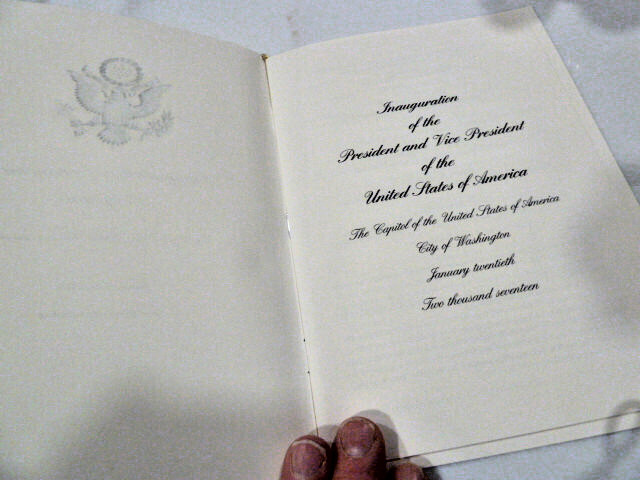 Inauguration
of the
President and Vice President
of the
United States of America
The Capitol of the United States of America
City of Washington
January twentieth
Two thousand seventeen